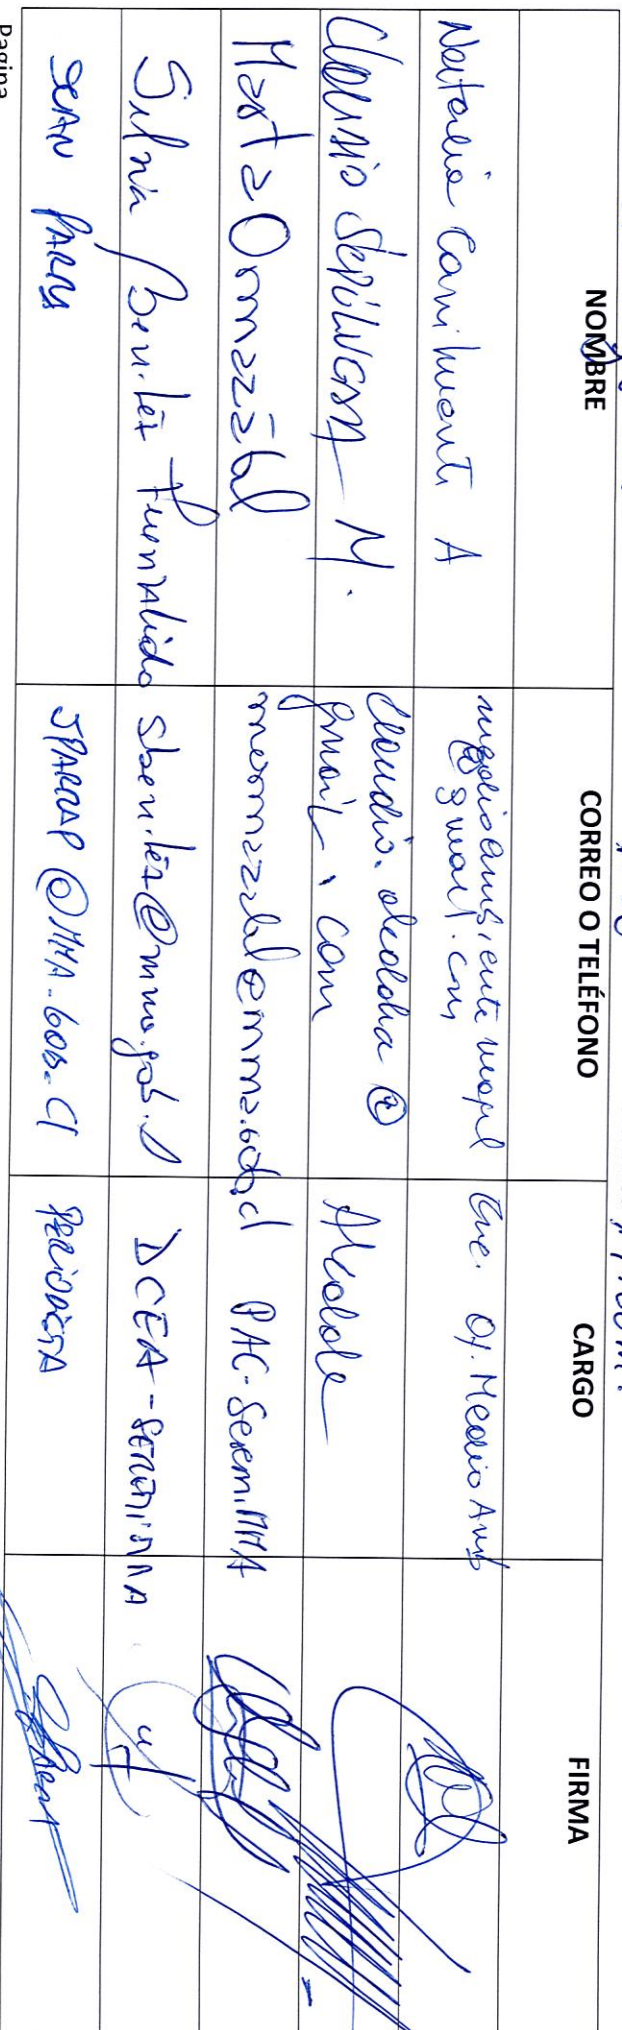 NOMBRE CORREO O TELÉFONO CARGO FIRMA
Natalia Carihuenti A medioambiente @gmail.com Enc. Of. Medio Amb
Claudio Sepúlveda M. claudio.alcaldia@ gmail.com Alcalde
Marta Ormazábal mormazabal@mma.gob.cl PAC-Seremi.MMA
Silvia Benítez sbenitez@mma.gob.cl DCEA-SEREMIMMA
JEAN PARRA JPARRAP@MMA.GOB.Cl PERIODISTA
Pagina